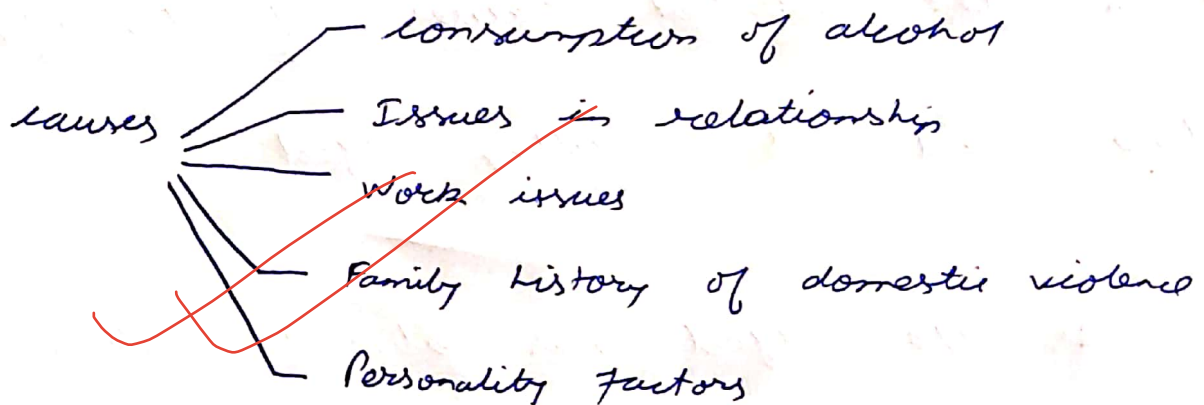 consumption of alcohol
causes
Issues in relationship
Work issues
Family history of domestic violence
Personality Factors